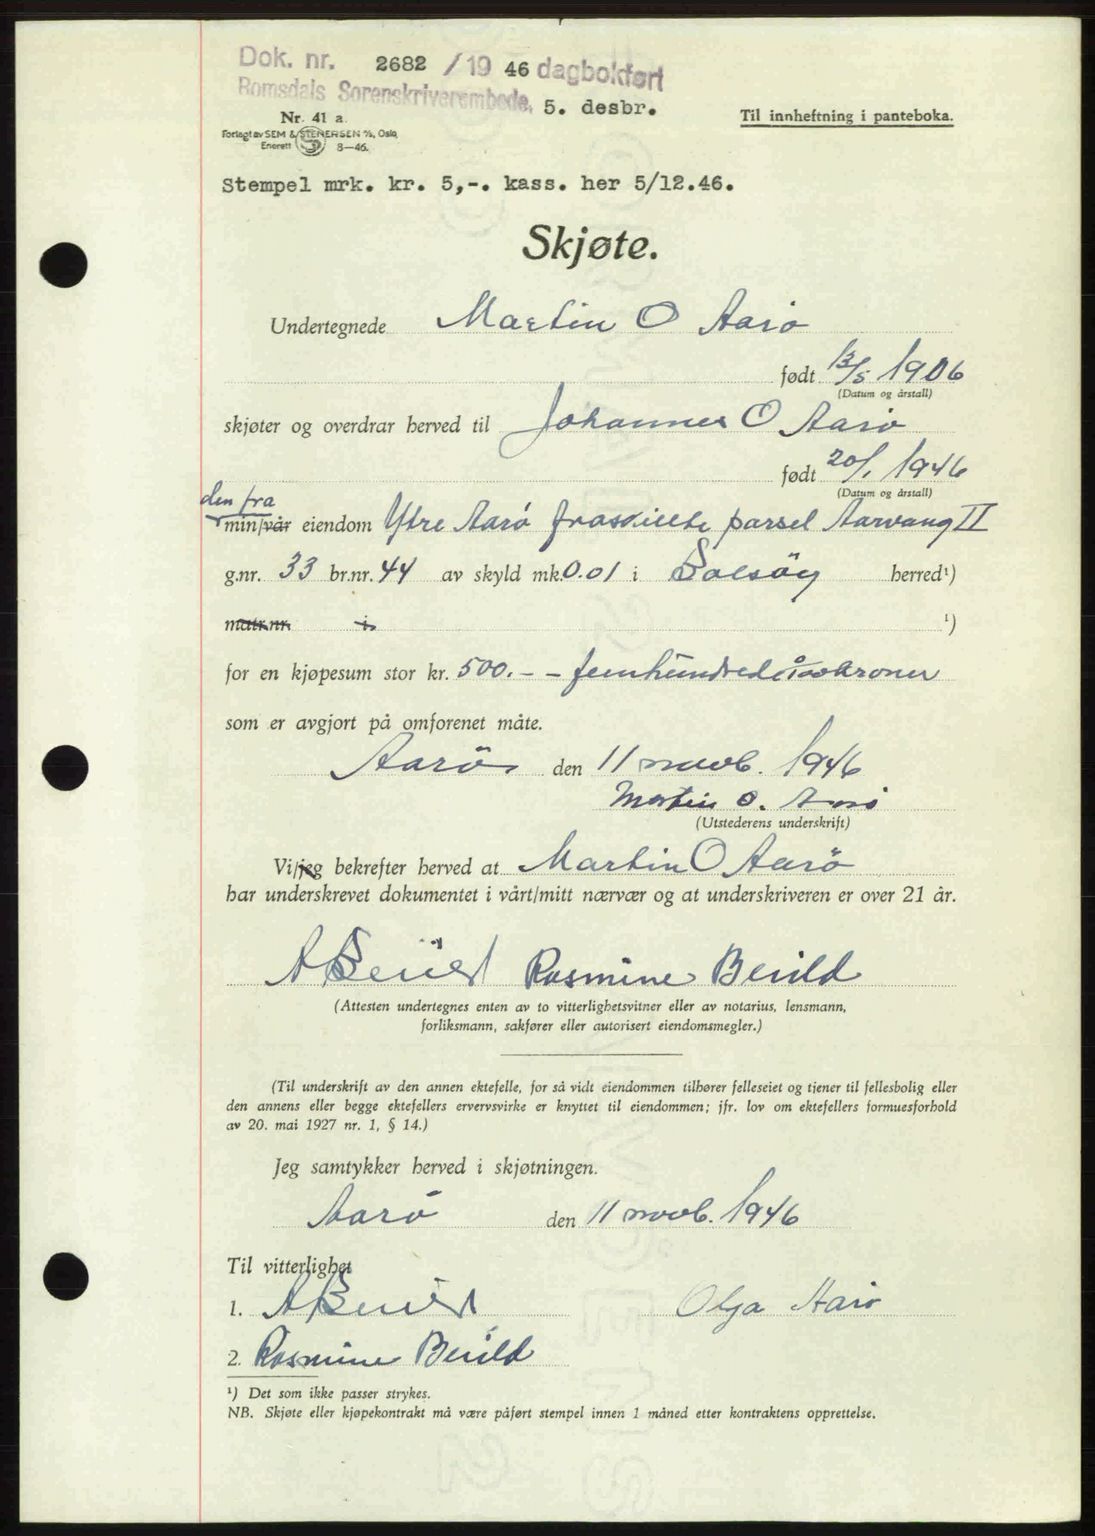 Dok. nr. 2682 / 19 46 dagbokført
Romsdals Sorenskriverembede, 5. desbr.
Nr. 41 a.
Til innheftning i panteboka.
Forlagt av SEM & STENERSEN A/S, Oslo
Enerett 8—46.
Stempel mrk. kr. 5,-. kass. her 5/12.46.
Skjøte.
Undertegnede Martin O Aarø
født 13/5 1906
(Datum og årstall)
skjøter og overdrar herved til Johannes O Aarø
født 20/1 1946
(Datum og årstall)
den fra
min/vår eiendom Ytre Aarø fraskilte parsel Aarvang II
g.nr. 33 br.nr. 44 av skyld mk. 0.01 i Bolsøy herred¹)
matr.nr. i ¹)
for en kjøpesum stor kr. 500.-- femhundrede 0/100 kroner
som er avgjort på omforenet måte.
Aarø den 11 novb. 1946
Martin O. Aarø
(Utstederens underskrift)
Vi/jeg bekrefter herved at Martin O Aarø
har underskrevet dokumentet i vårt/mitt nærvær og at underskriveren er over 21 år.
A Berild Rasmine Berild
(Attesten undertegnes enten av to vitterlighetsvitner eller av notarius, lensmann,
forliksmann, sakfører eller autorisert eiendomsmegler.)
(Til underskrift av den annen ektefelle, for så vidt eiendommen tilhører felleseiet og tjener til fellesbolig eller
den annens eller begge ektefellers ervervsvirke er knyttet til eiendommen; jfr. lov om ektefellers formuesforhold
av 20. mai 1927 nr. 1, § 14.)
Jeg samtykker herved i skjøtningen.
Aarø den 11 novb. 1946
Til vitterlighet
1. A Berild Olga Aarø
2. Rasmine Berild
¹) Det som ikke passer strykes.
NB. Skjøte eller kjøpekontrakt må være påført stempel innen 1 måned etter kontraktens opprettelse.